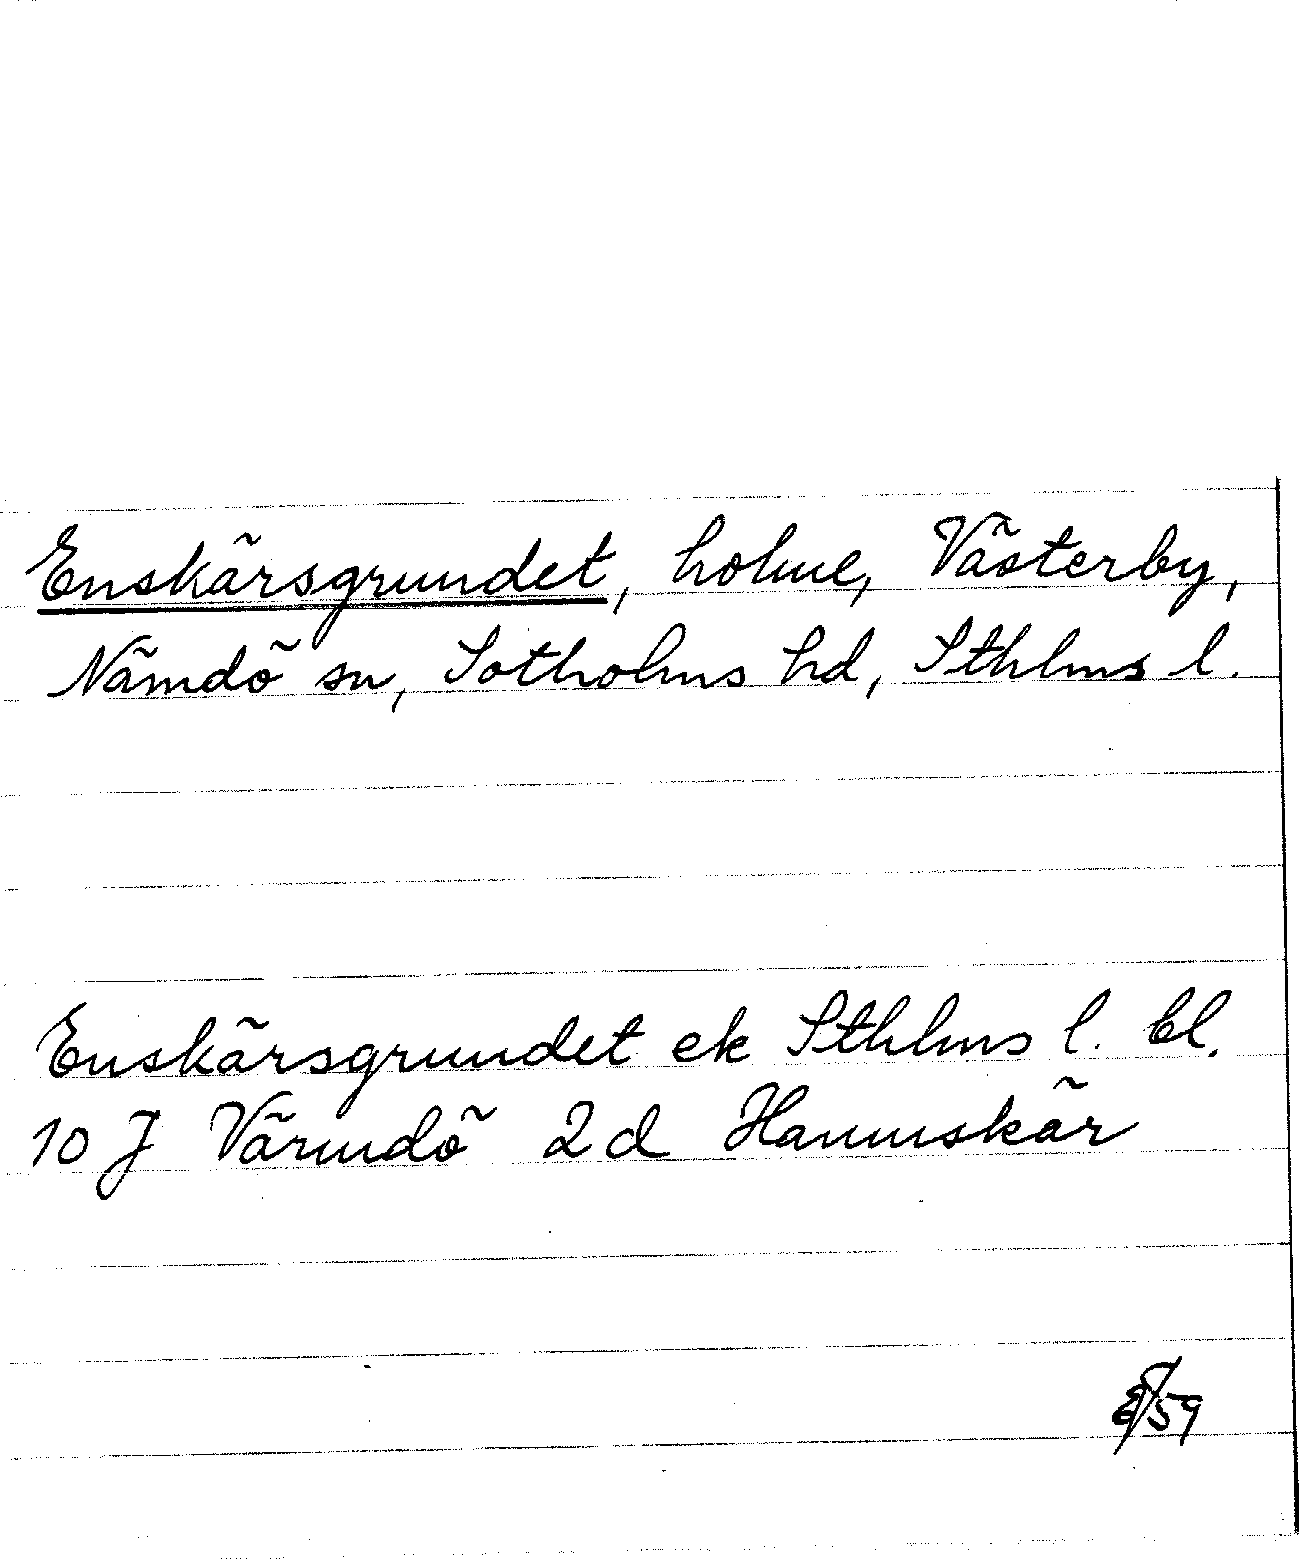 Enskärsgrundet, holme, Västerby,
Nämdö sn, Sotholms hd, Sthlms l.
Enskärsgrundet ek Sthlms l. bl.
10 J Värmdö 2d Hamnskär
/59